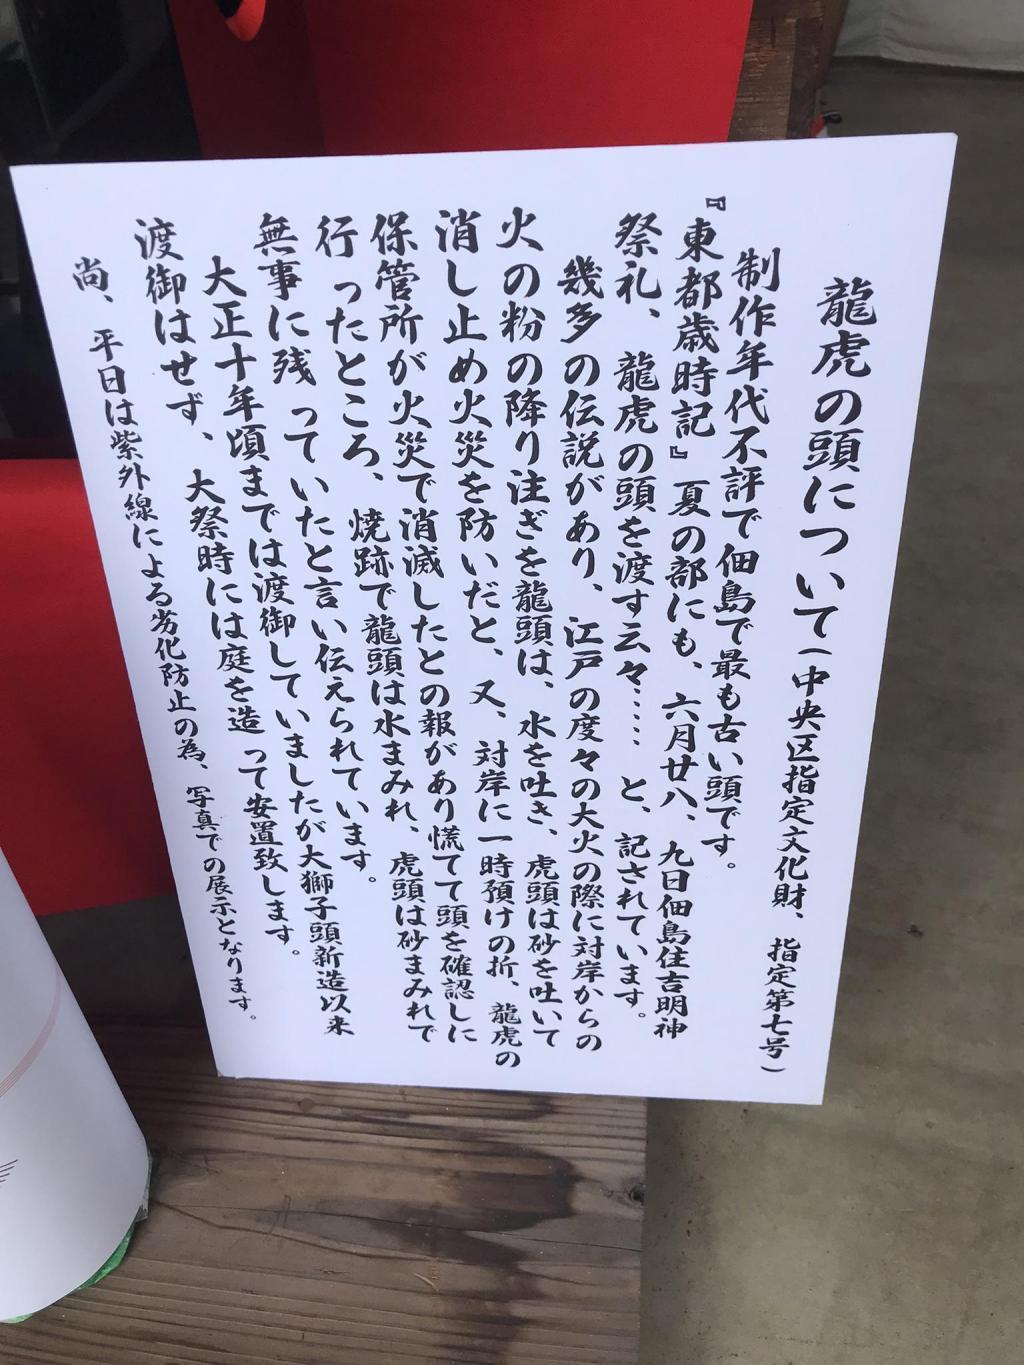 龍虎の頭について(中央区指定文化財、指定第七号)
制作年代不評で佃島で最も古い頭です。
『東都歳時記』夏の部にも、六月廿八、九日佃島住吉明神
祭礼、龍虎の頭を渡す云々……と、記されています。
幾多の伝説があり、江戸の度々の大火の際に対岸からの
火の粉の降り注ぎを龍頭は、水を吐き、虎頭は砂を吐いて
消し止め火災を防いだと、又、対岸に一時預けの折、龍虎の
保管所が火災で消滅したとの報があり慌てて頭を確認しに
行ったところ、焼跡で龍頭は水まみれ、虎頭は砂まみれで
無事に残っていたと言い伝えられています。
大正十年頃までは渡御していましたが大獅子頭新造以来
渡御はせず、大祭時には庭を造って安置致します。
尚、平日は紫外線による劣化防止の為、写真での展示となります。